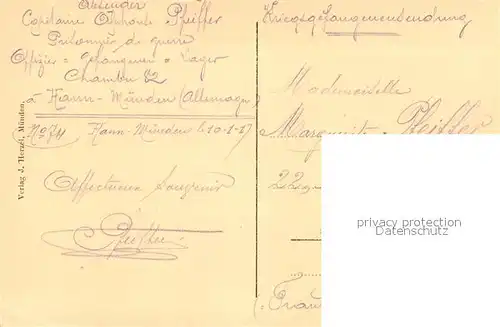 Absender
Capitaine Alphonse Pfeiffer
Prisonnier de guerre
Offizier = Gefangenen = Lager
Chambre 72
à Hann-Münden (Allemagne)
No 74 Hann-Münden, 10-1-17
Affectueux Souvenir
Pfeiffer
Verlag J. Herzei, Münden.
Kriegsgefangenensendung
Mademoiselle
Marguerite Pfeiffer
22
privacy protection
privacy protection